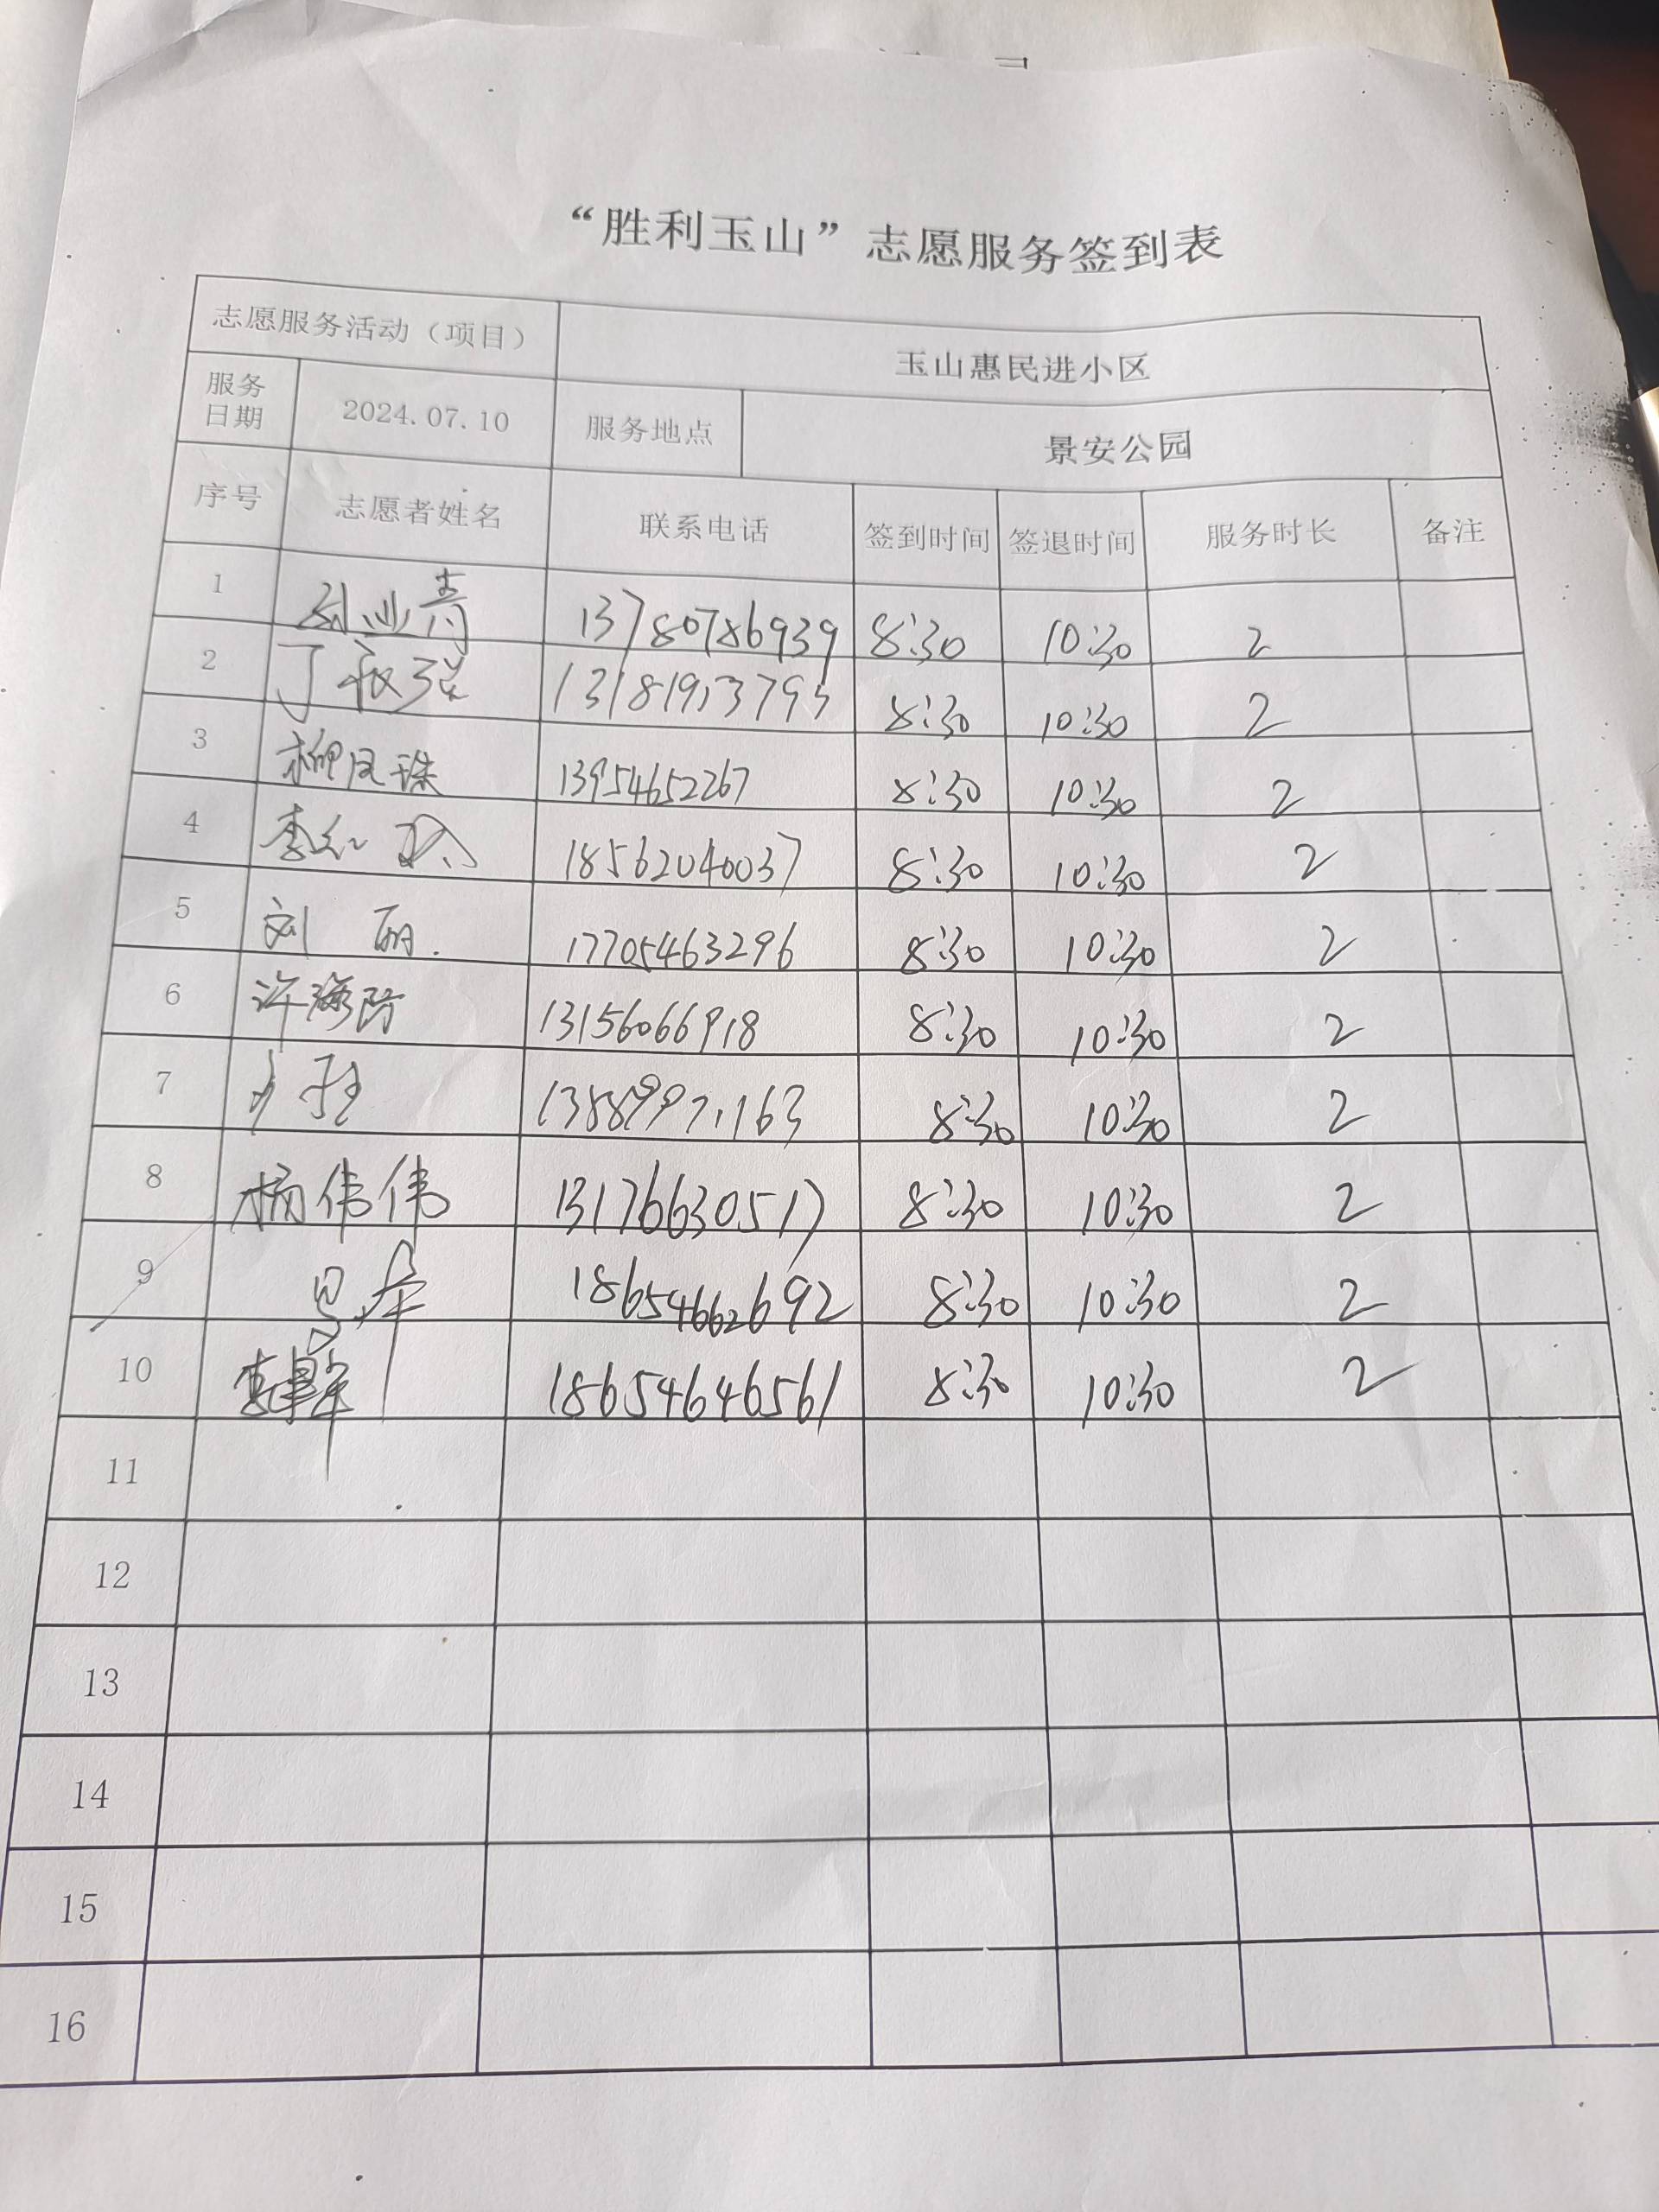 “胜利玉山”志愿服务签到表
志愿服务活动（项目） 玉山惠民进小区
服务日期 2024.07.10 服务地点 景安公园
序号 志愿者姓名 联系电话 签到时间 签退时间 服务时长 备注
1 13780786939 8:30 10:30 2
2 13181913793 8:30 10:30 2
3 柳凤珠 13954652267 8:30 10:30 2
4 18562040037 8:30 10:30 2
5 刘丽. 17705463296 8:30 10:30 2
6 许海防 13156066918 8:30 10:30 2
7 13889971163 8:30 10:30 2
8 杨伟伟 13176630517 8:30 10:30 2
9 18654662692 8:30 10:30 2
10 18654646561 8:30 10:30 2
11
12
13
14
15
16